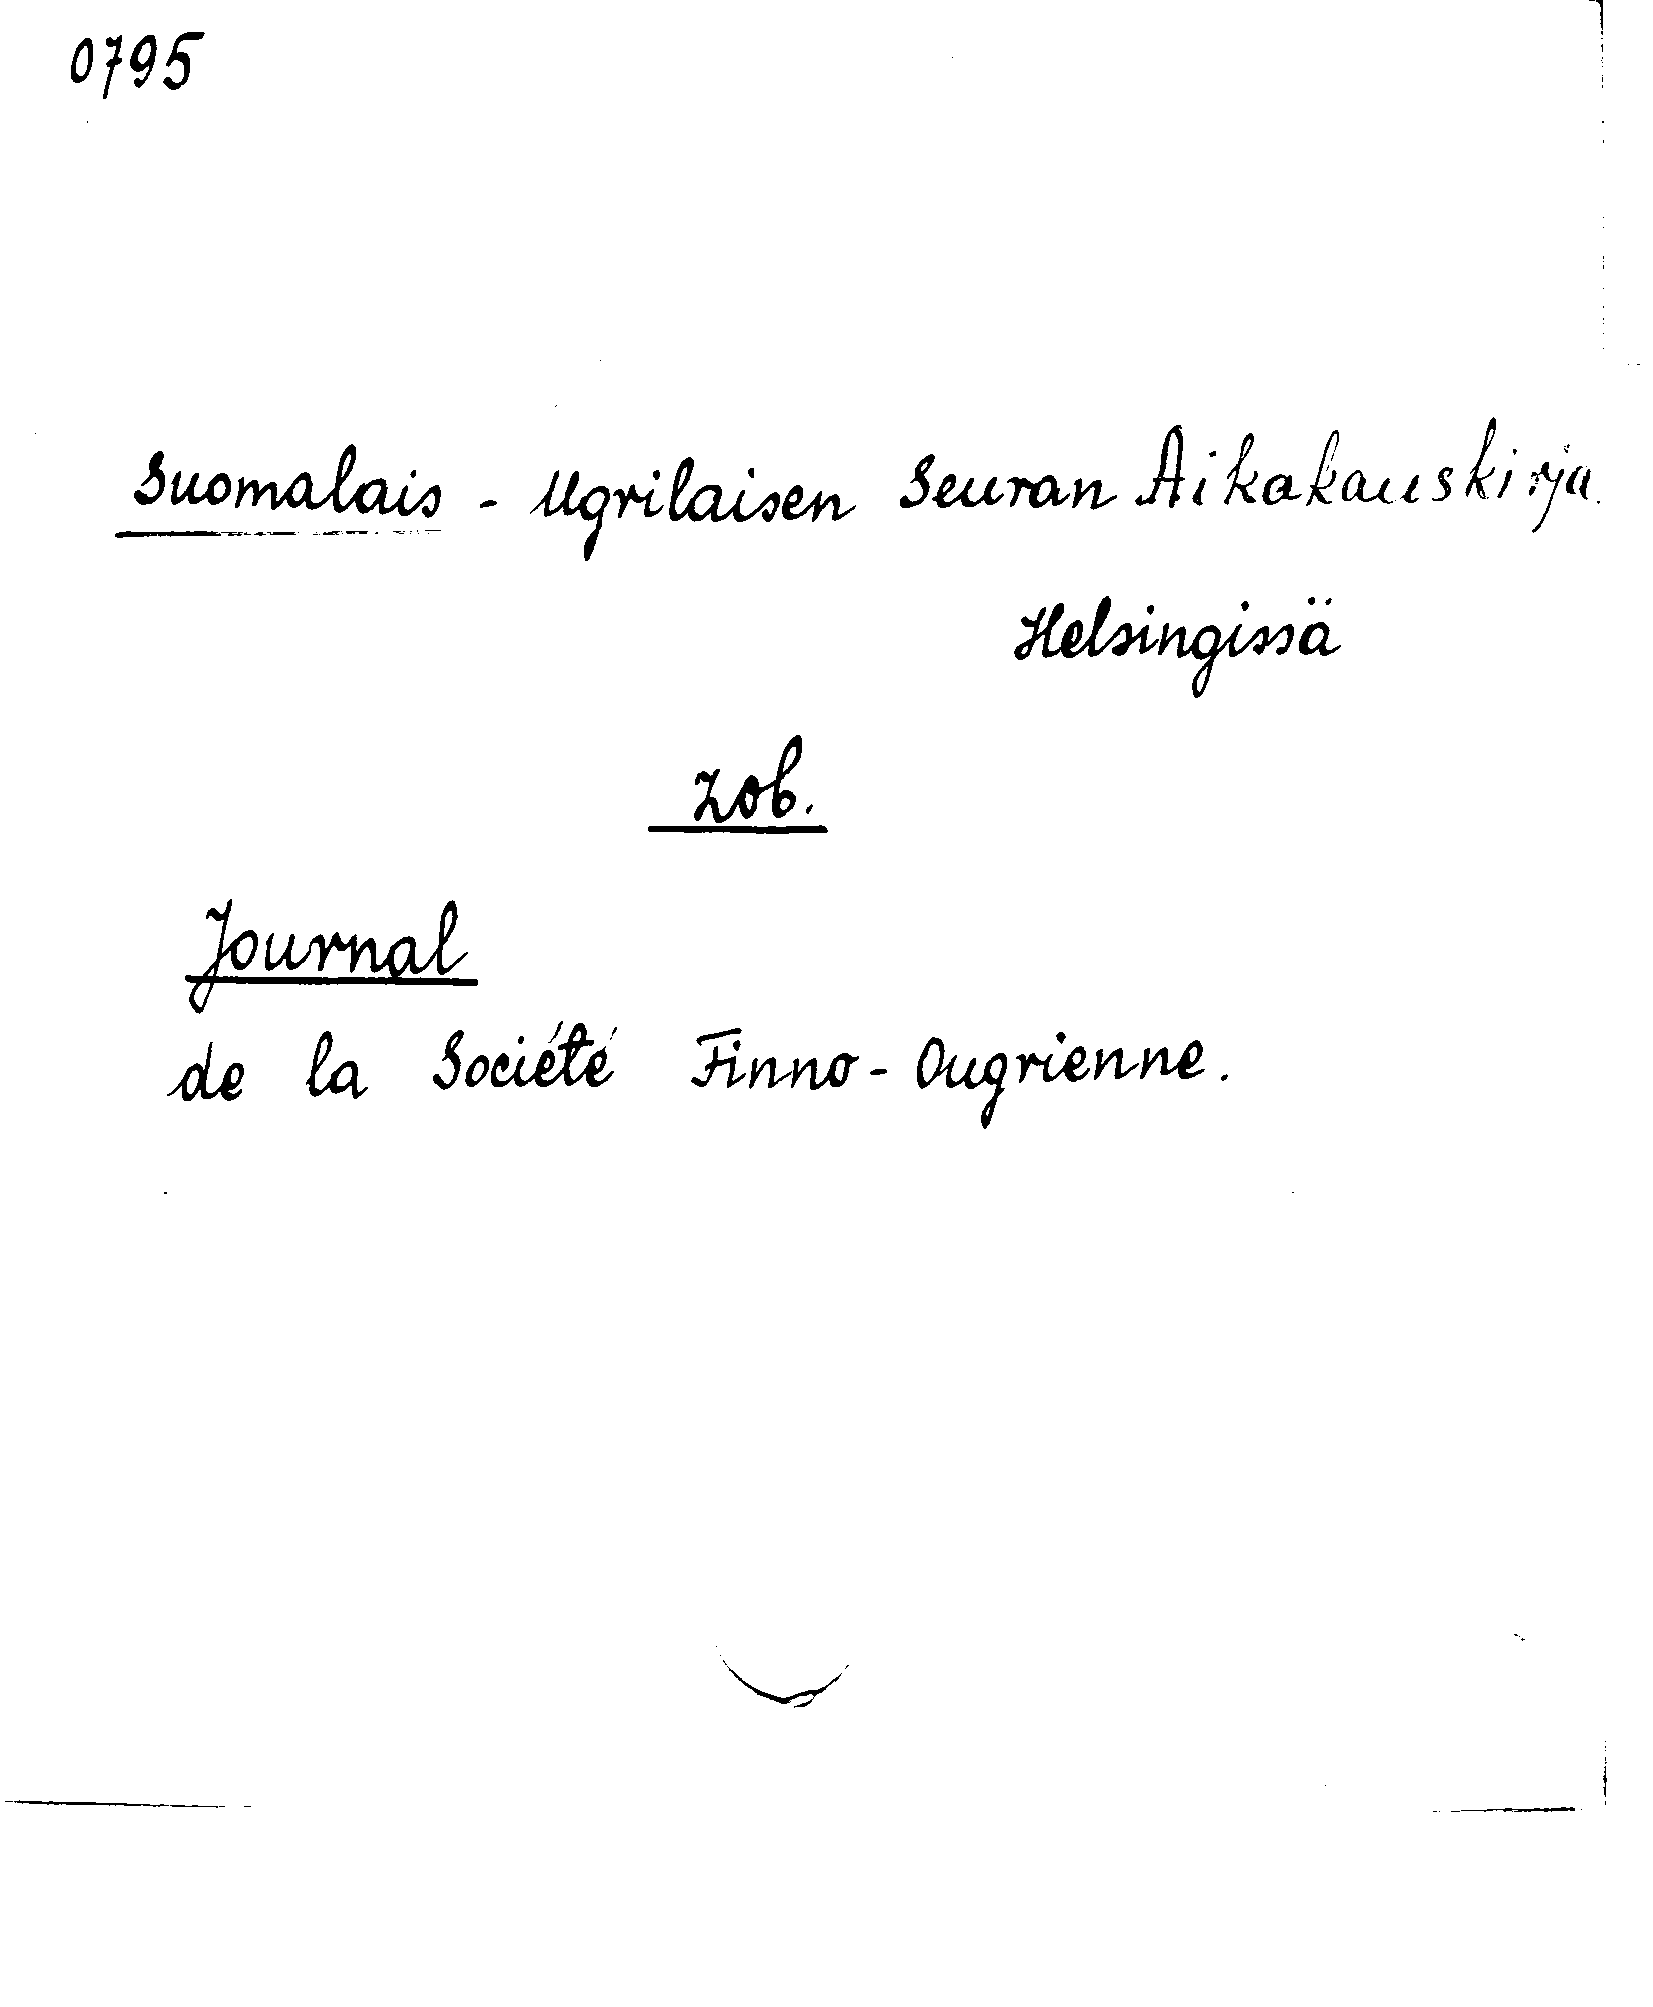 0795
Suomalais - Ugrilaisen Seuran Aikakauskirja.
Helsingissä
zob.
Journal
de la Société Finno - Ougrienne.